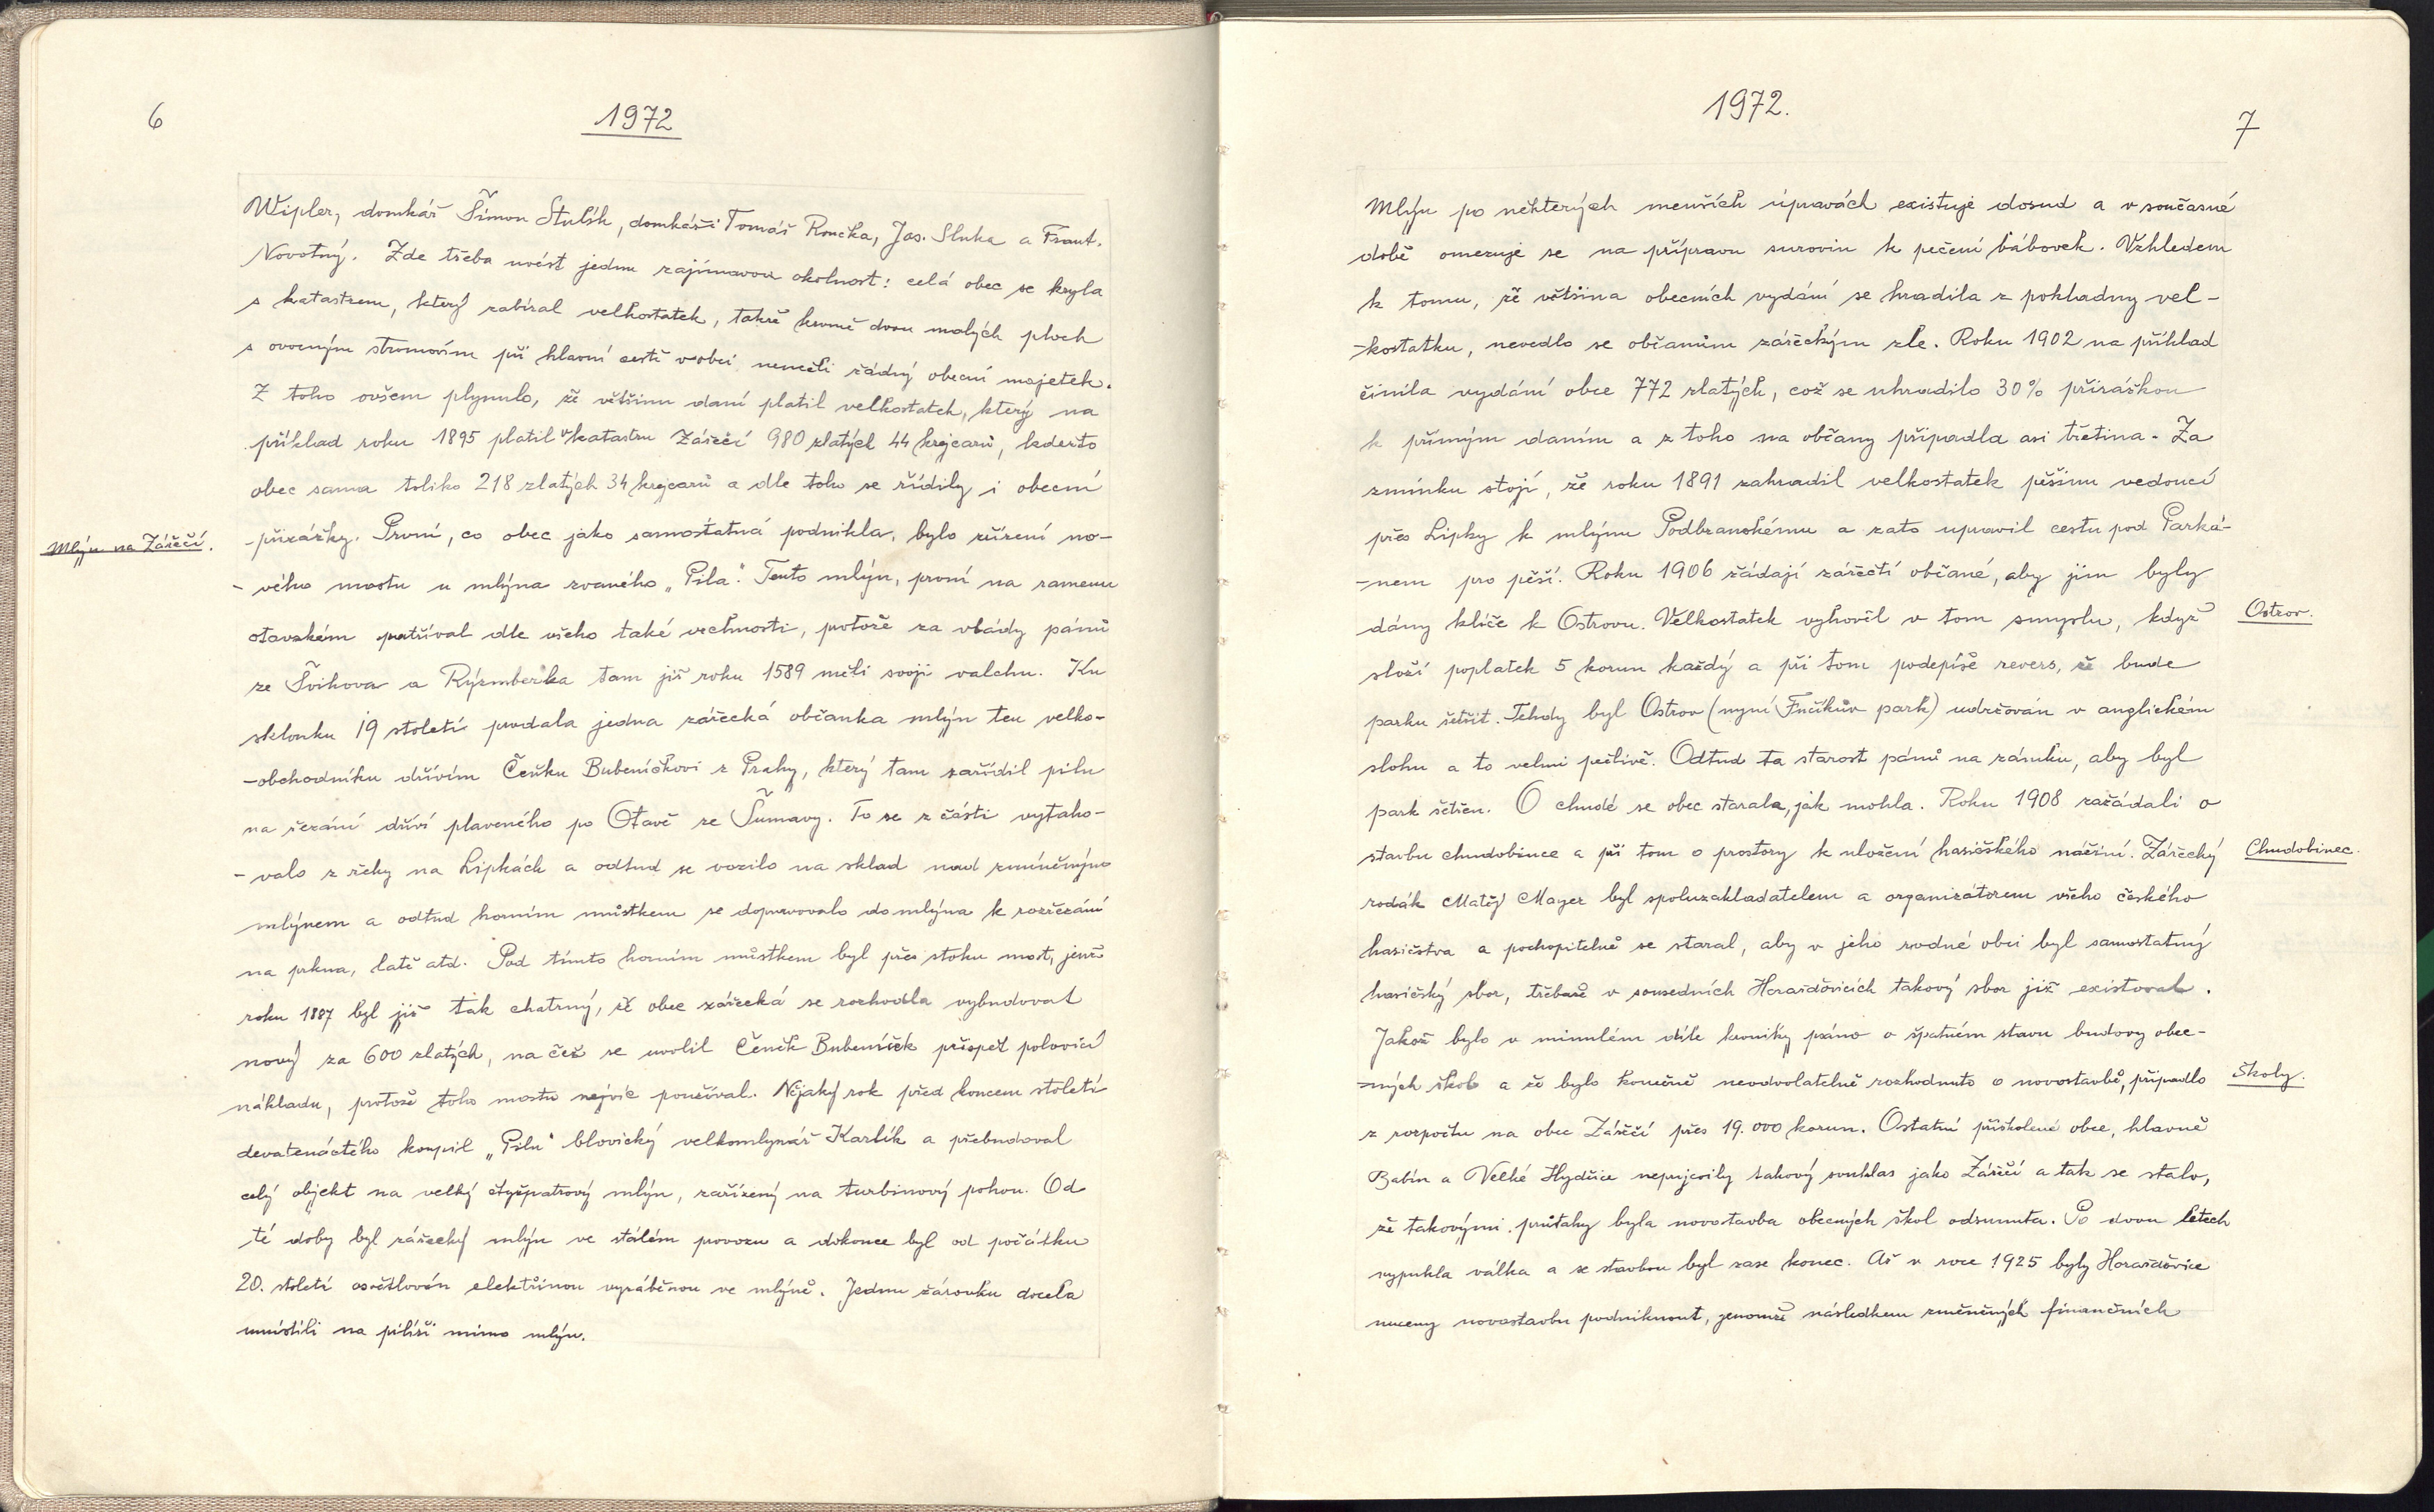 6
1972
Wipler, domkář Šimon Stulík, domkáři Tomáš Roučka, Jos. Sluka a Frant.
Novotný. Zde třeba uvést jednu zajímavou okolnost: celá obec se kryla
s katastrem, který zabíral velkostatek, takže kromě dvou malých ploch
s ovocným stromovím při hlavní cestě v obci neměli žádný obecní majetek.
Z toho ovšem plynulo, že většinu daní platil velkostatek, který na
příklad roku 1895 platil v katastru Zářečí 980 zlatých 44 krejcarů, kdežto
obec sama toliko 218 zlatých 34 krejcarů a dle toho se řídily i obecní
Mlýn na Zářečí.
-přirážky. První, co obec jako samostatná podnikla, bylo zřízení no-
-vého mostu u mlýna zvaného „Pila". Tento mlýn, první na rameni
otavském patříval dle všeho také vrchnosti, protože za vlády pánů
ze Švihova a Rýzmberka tam již roku 1589 měli svoji valchu. Ku
sklonku 19 století prodala jedna zářecká občanka mlýn ten velko-
-obchodníku dřívím Čeňku Bubeníčkovi z Prahy, který tam zařídil pilu
na řezání dříví plaveného po Otavě ze Šumavy. To se z části vytaho-
-valo z řeky na Lipkách a odtud se vozilo na sklad nad zmíněným
mlýnem a odtud horním můstkem se dopravovalo do mlýna k rozřezání
na prkna, latě atd. Pod tímto horním můstkem byl přes stoku most, jenž
roku 1887 byl již tak chatrný, že obec zářecká se rozhodla vybudovat
nový za 600 zlatých, na čež se uvolil Čeněk Bubeníček přispět polovicí
nákladu, protože toho mostu nejvíc používal. Nějaký rok před koncem století
devatenáctého koupil „Pilu" blovický velkomlynář Karlík a přebudoval
celý objekt na velký čtyřpatrový mlýn, zařízený na turbinový pohon. Od
té doby byl zářecký mlýn ve stálém provozu a dokonce byl od počátku
20. století osvětlován elektřinou vyráběnou ve mlýně. Jednu žárovku docela
umístili na pilíři mimo mlýn.
1972.
7
Mlýn po některých menších úpravách existuje dosud a v současné
době omezuje se na přípravu surovin k pečení bábovek. Vzhledem
k tomu, že většina obecních vydání se hradila z pokladny vel-
-kostatku, nevedlo se občanům zářeckým zle. Roku 1902 na příklad
činila vydání obce 772 zlatých, což se uhradilo 30% přirážkou
k přímým daním a z toho na občany připadla asi třetina. Za
zmínku stojí, že roku 1891 zahradil velkostatek pěšinu vedoucí
přes Lipky k mlýnu Podbranskému a zato upravil cestu pod Parká-
-nem pro pěší. Roku 1906 žádají zářečtí občané, aby jim byly
dány klíče k Ostrovu. Velkostatek vyhověl v tom smyslu, když
Ostrov.
složí poplatek 5 korun každý a při tom podepíše revers, že bude
parku šetřit. Tehdy byl Ostrov (nyní Fučíkův park) udržován v anglickém
slohu a to velmi pečlivě. Odtud ta starost pánů na zámku, aby byl
park šetřen. O chudé se obec starala, jak mohla. Roku 1908 zažádali o
stavbu chudobince a při tom o prostory k uložení hasičského náčiní. Zářecký
Chudobinec.
rodák Matěj Mayer byl spoluzakladatelem a organizátorem všeho českého
hasičstva a pochopitelně se staral, aby v jeho rodné obci byl samostatný
hasičský sbor, třebaže v sousedních Horažďovicích takový sbor již existoval.
Jakož bylo v minulém díle kroniky psáno o špatném stavu budovy obec-
-ných škol a že bylo konečně neodvolatelně rozhodnuto o novostavbě, připadlo
Školy.
z rozpočtu na obec Zářečí přes 19.000 korun. Ostatní přiškolené obce, hlavně
Babín a Velké Hydčice neprojevily takový souhlas jako Zářečí a tak se stalo,
že takovými průtahy byla novostavba obecných škol odsunuta. Po dvou letech
vypukla válka a se stavbou byl zase konec. Až v roce 1925 byly Horažďovice
nuceny novostavbu podniknout, jenomže následkem změněných finančních